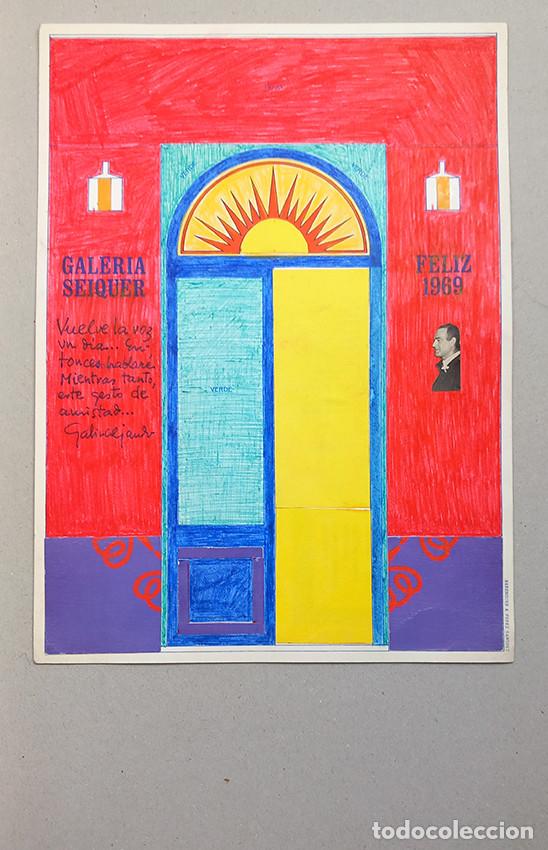 VERDE
VERDE
GALERIA
SEIQUER
FELIZ
1969
Vuelve la voz
un día... En-
tonces hablaré.
Mientras tanto,
este gesto de
amistad...
VERDE
todocoleccion
todocoleccion.net